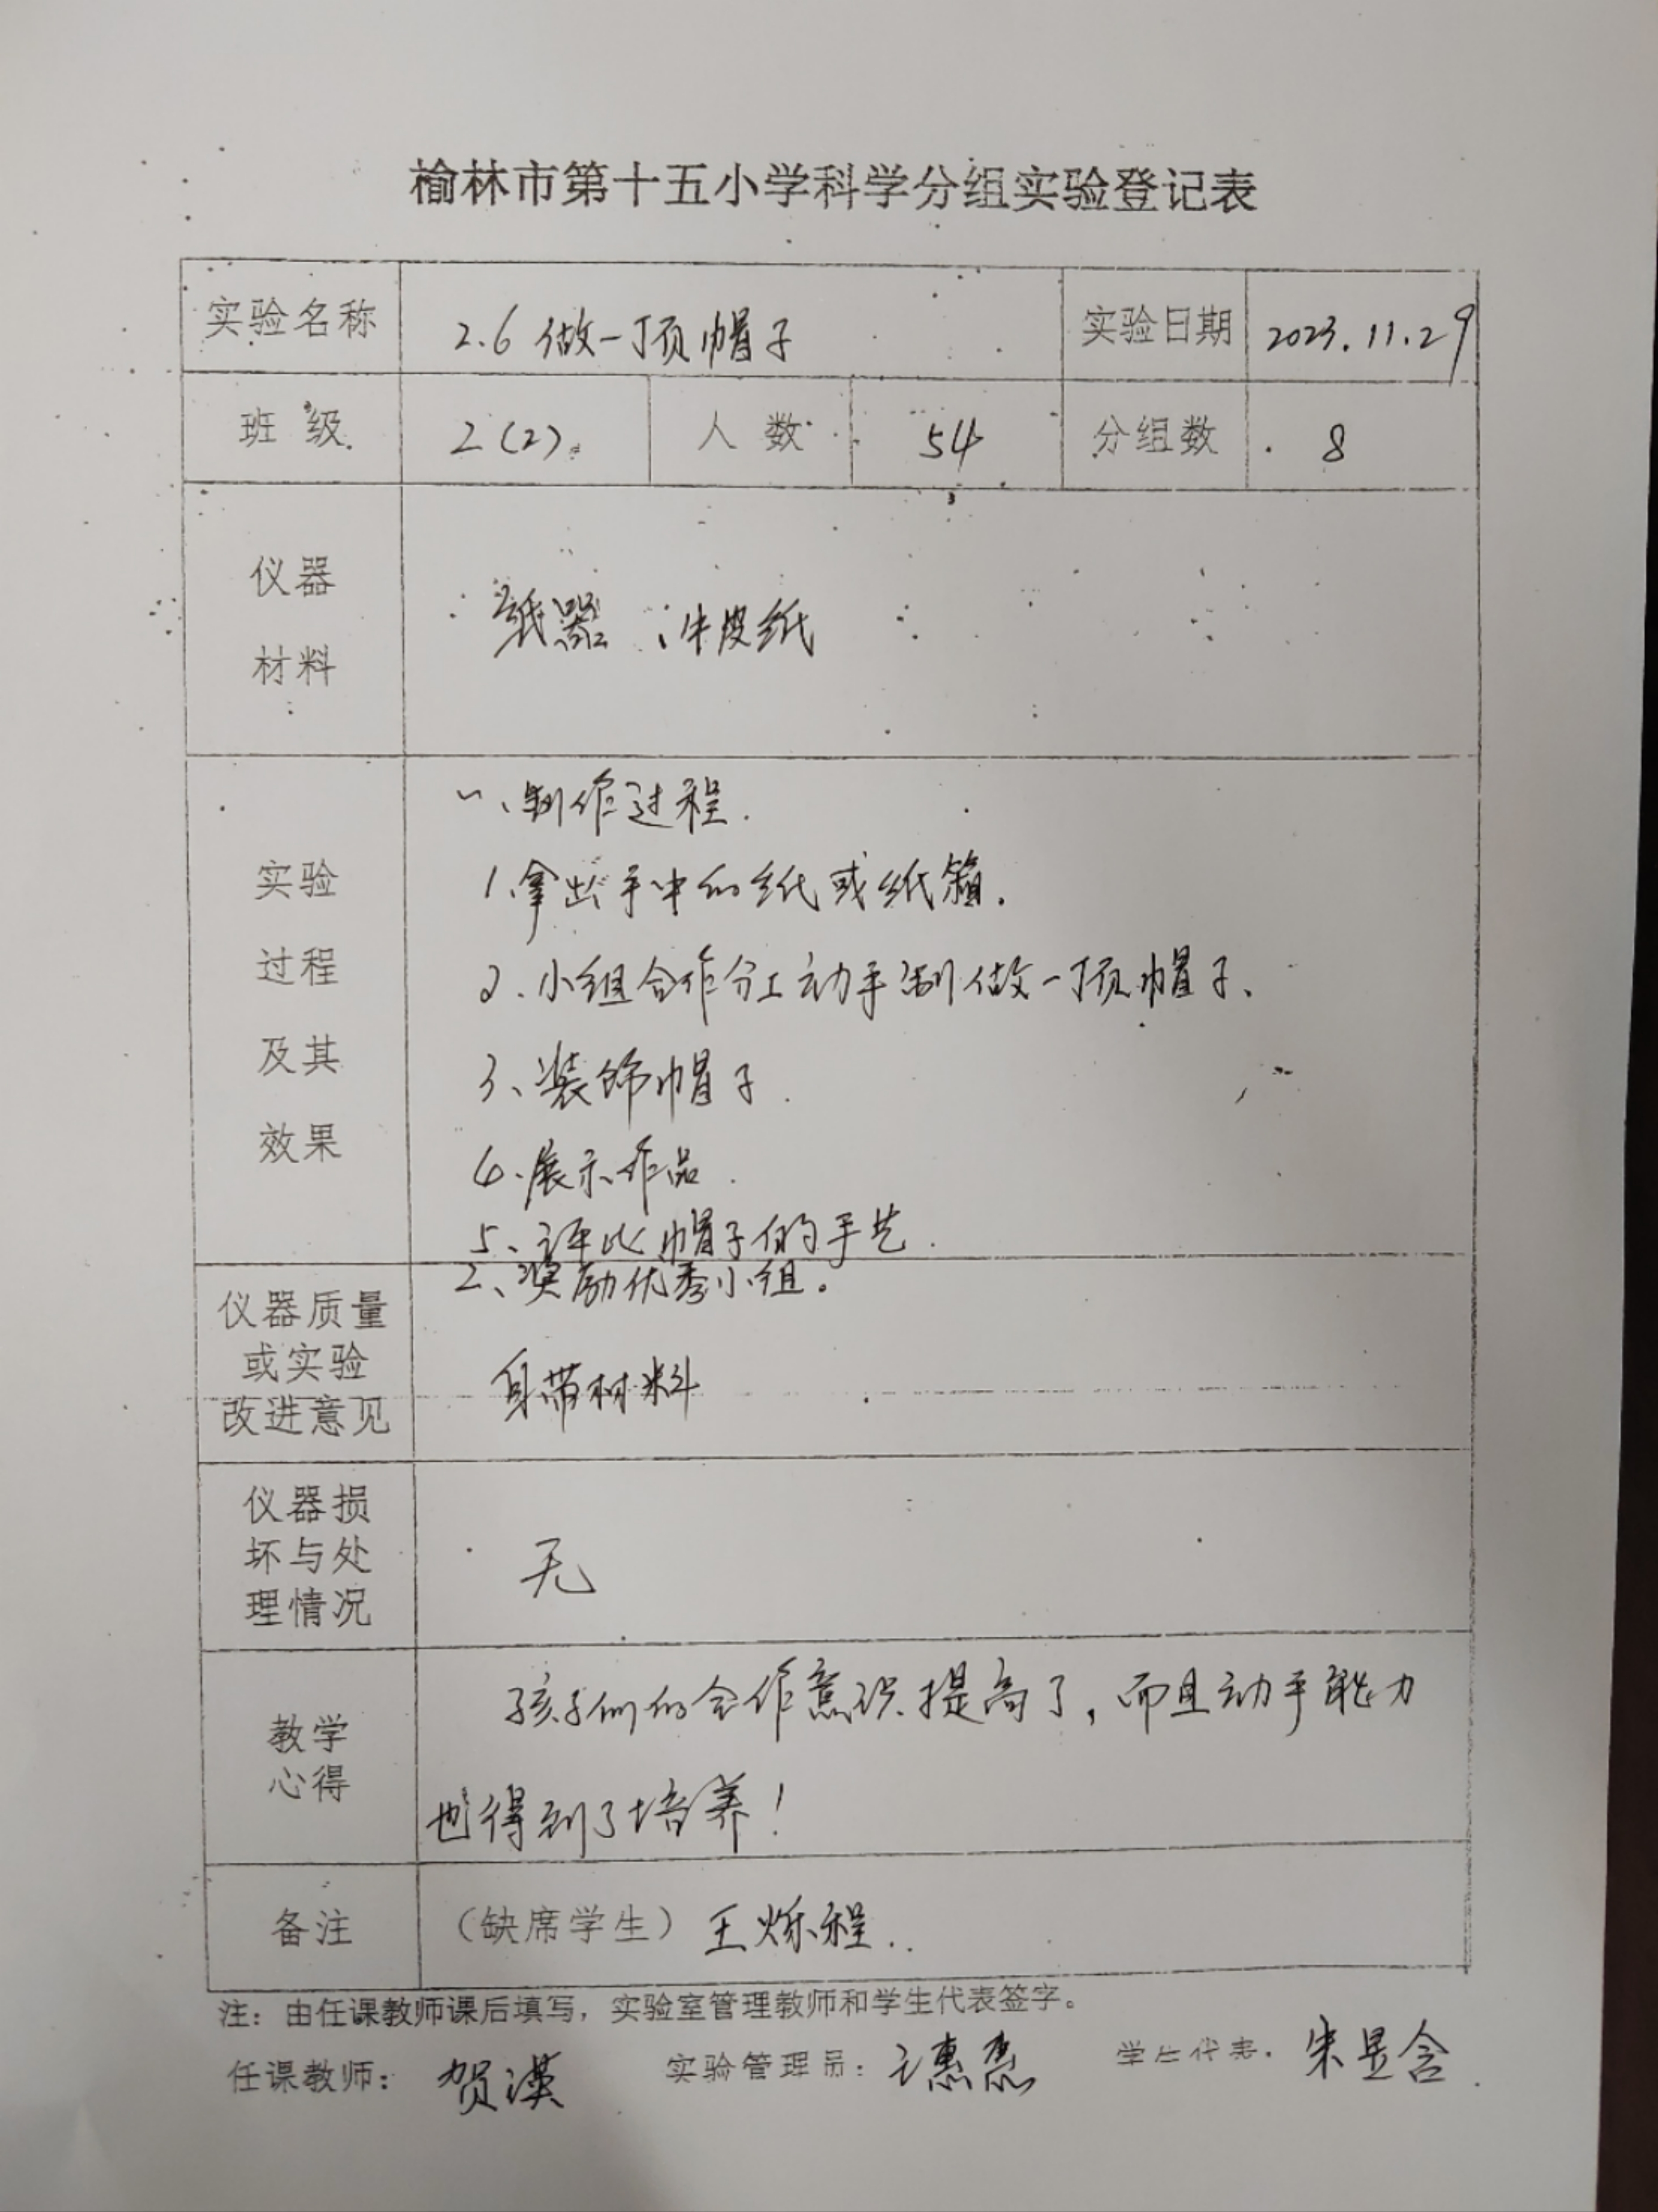 榆林市第十五小学科学分组实验登记表
实验名称 2.6 做一顶帽子 实验日期 2023.11.29
班 级 2(2) 人 数 54 分组数 8
仪器
材料
纸器、牛皮纸
实验
过程
及其
效果
一、制作过程.
1.拿出手中的纸或纸箱.
2.小组合作分工动手制做一顶帽子、
3、装饰帽子.
4.展示作品.
5、评比帽子的手艺.
二、奖励优秀小组。
仪器质量
或实验
改进意见
自带材料
仪器损
坏与处
理情况
无
教学
心得
孩子们的合作意识提高了,而且动手能力
也得到了培养!
备注 (缺席学生) 王烁程..
注:由任课教师课后填写,实验室管理教师和学生代表签字。
任课教师: 贺 实验管理员: 学生代表: 朱昱含